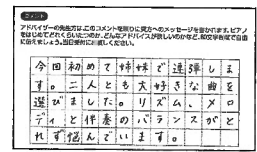 コメント
アドバイザーの先生方は、このコメントを頼りに貴方へのメッセージを書かれます。ピアノ
をはじめてどれくらいたつのか、どんなアドバイスが欲しいのかなど、80文字程度で自由
に書きましょう。当日受付にお渡しください。
今回初めて姉妹で連弾しま
す。二人とも大好きな曲を
選びました。リズム、メロ
ディと伴奏のバランスがと
れず悩んでいます。